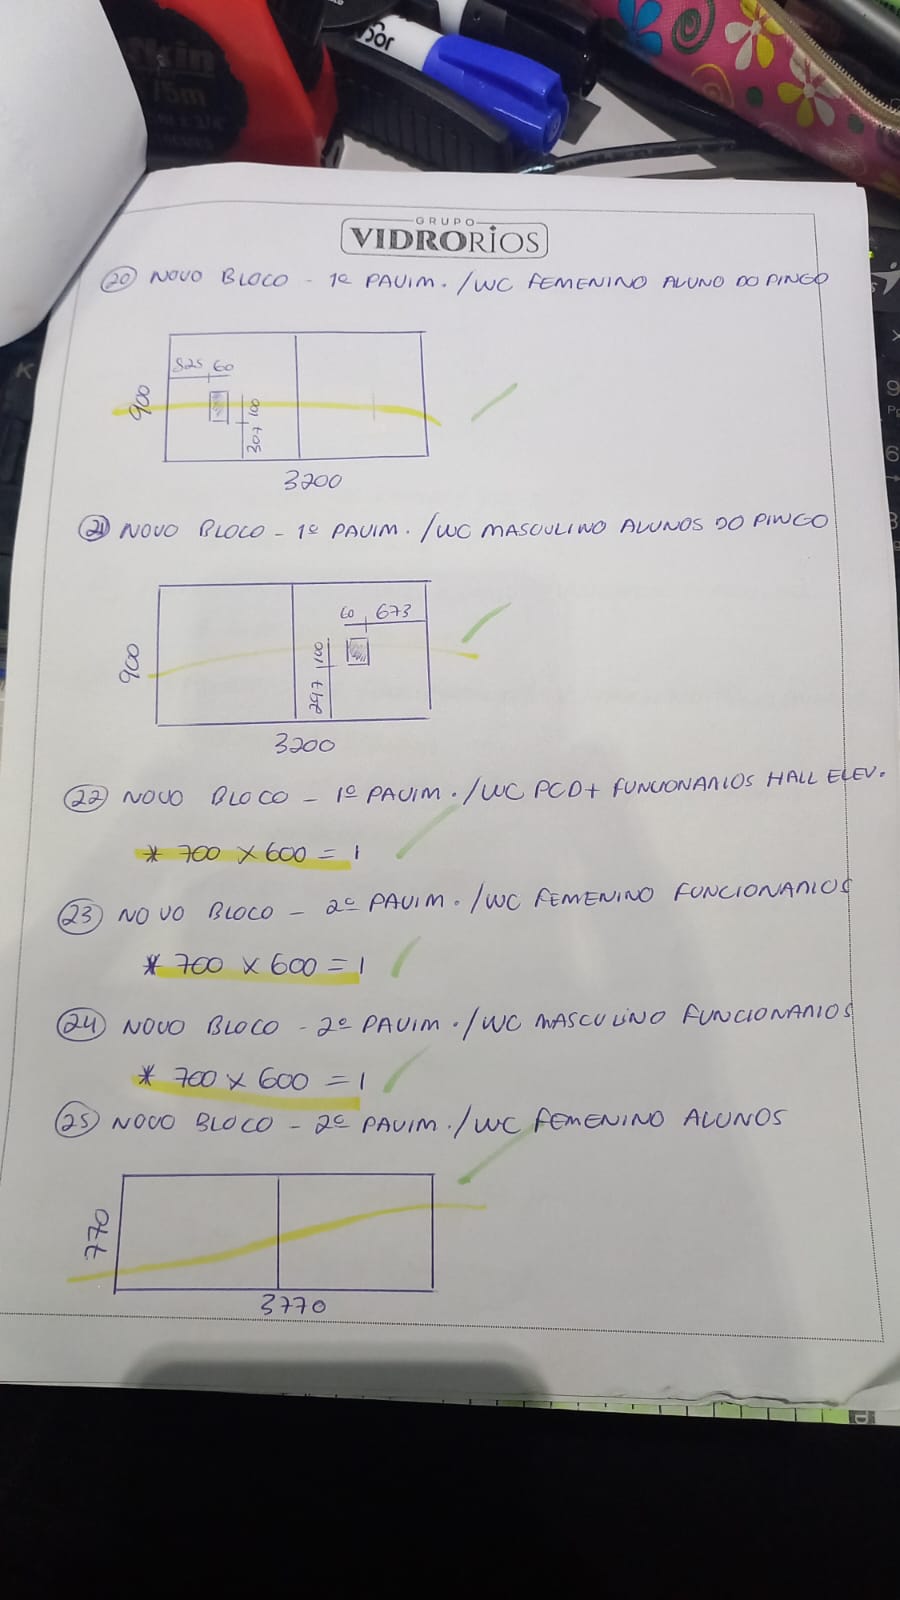 GRUPO
VIDRORIOS
20 NOVO BLOCO - 1º PAVIM. / WC FEMENINO ALUNO DO PINGO
825 60
900
307 100
3200
21 NOVO BLOCO - 1º PAVIM. / WC MASCULINO ALUNOS DO PINGO
60 673
900
297 100
3200
22 NOVO BLOCO - 1º PAVIM. / WC PCD + FUNCIONARIOS HALL ELEV.
* 700 X 600 = 1
23 NOVO BLOCO - 2º PAVIM. / WC FEMENINO FUNCIONARIOS
* 700 X 600 = 1
24 NOVO BLOCO - 2º PAVIM. / WC MASCULINO FUNCIONARIOS
* 700 X 600 = 1
25 NOVO BLOCO - 2º PAVIM. / WC FEMENINO ALUNOS
770
3770